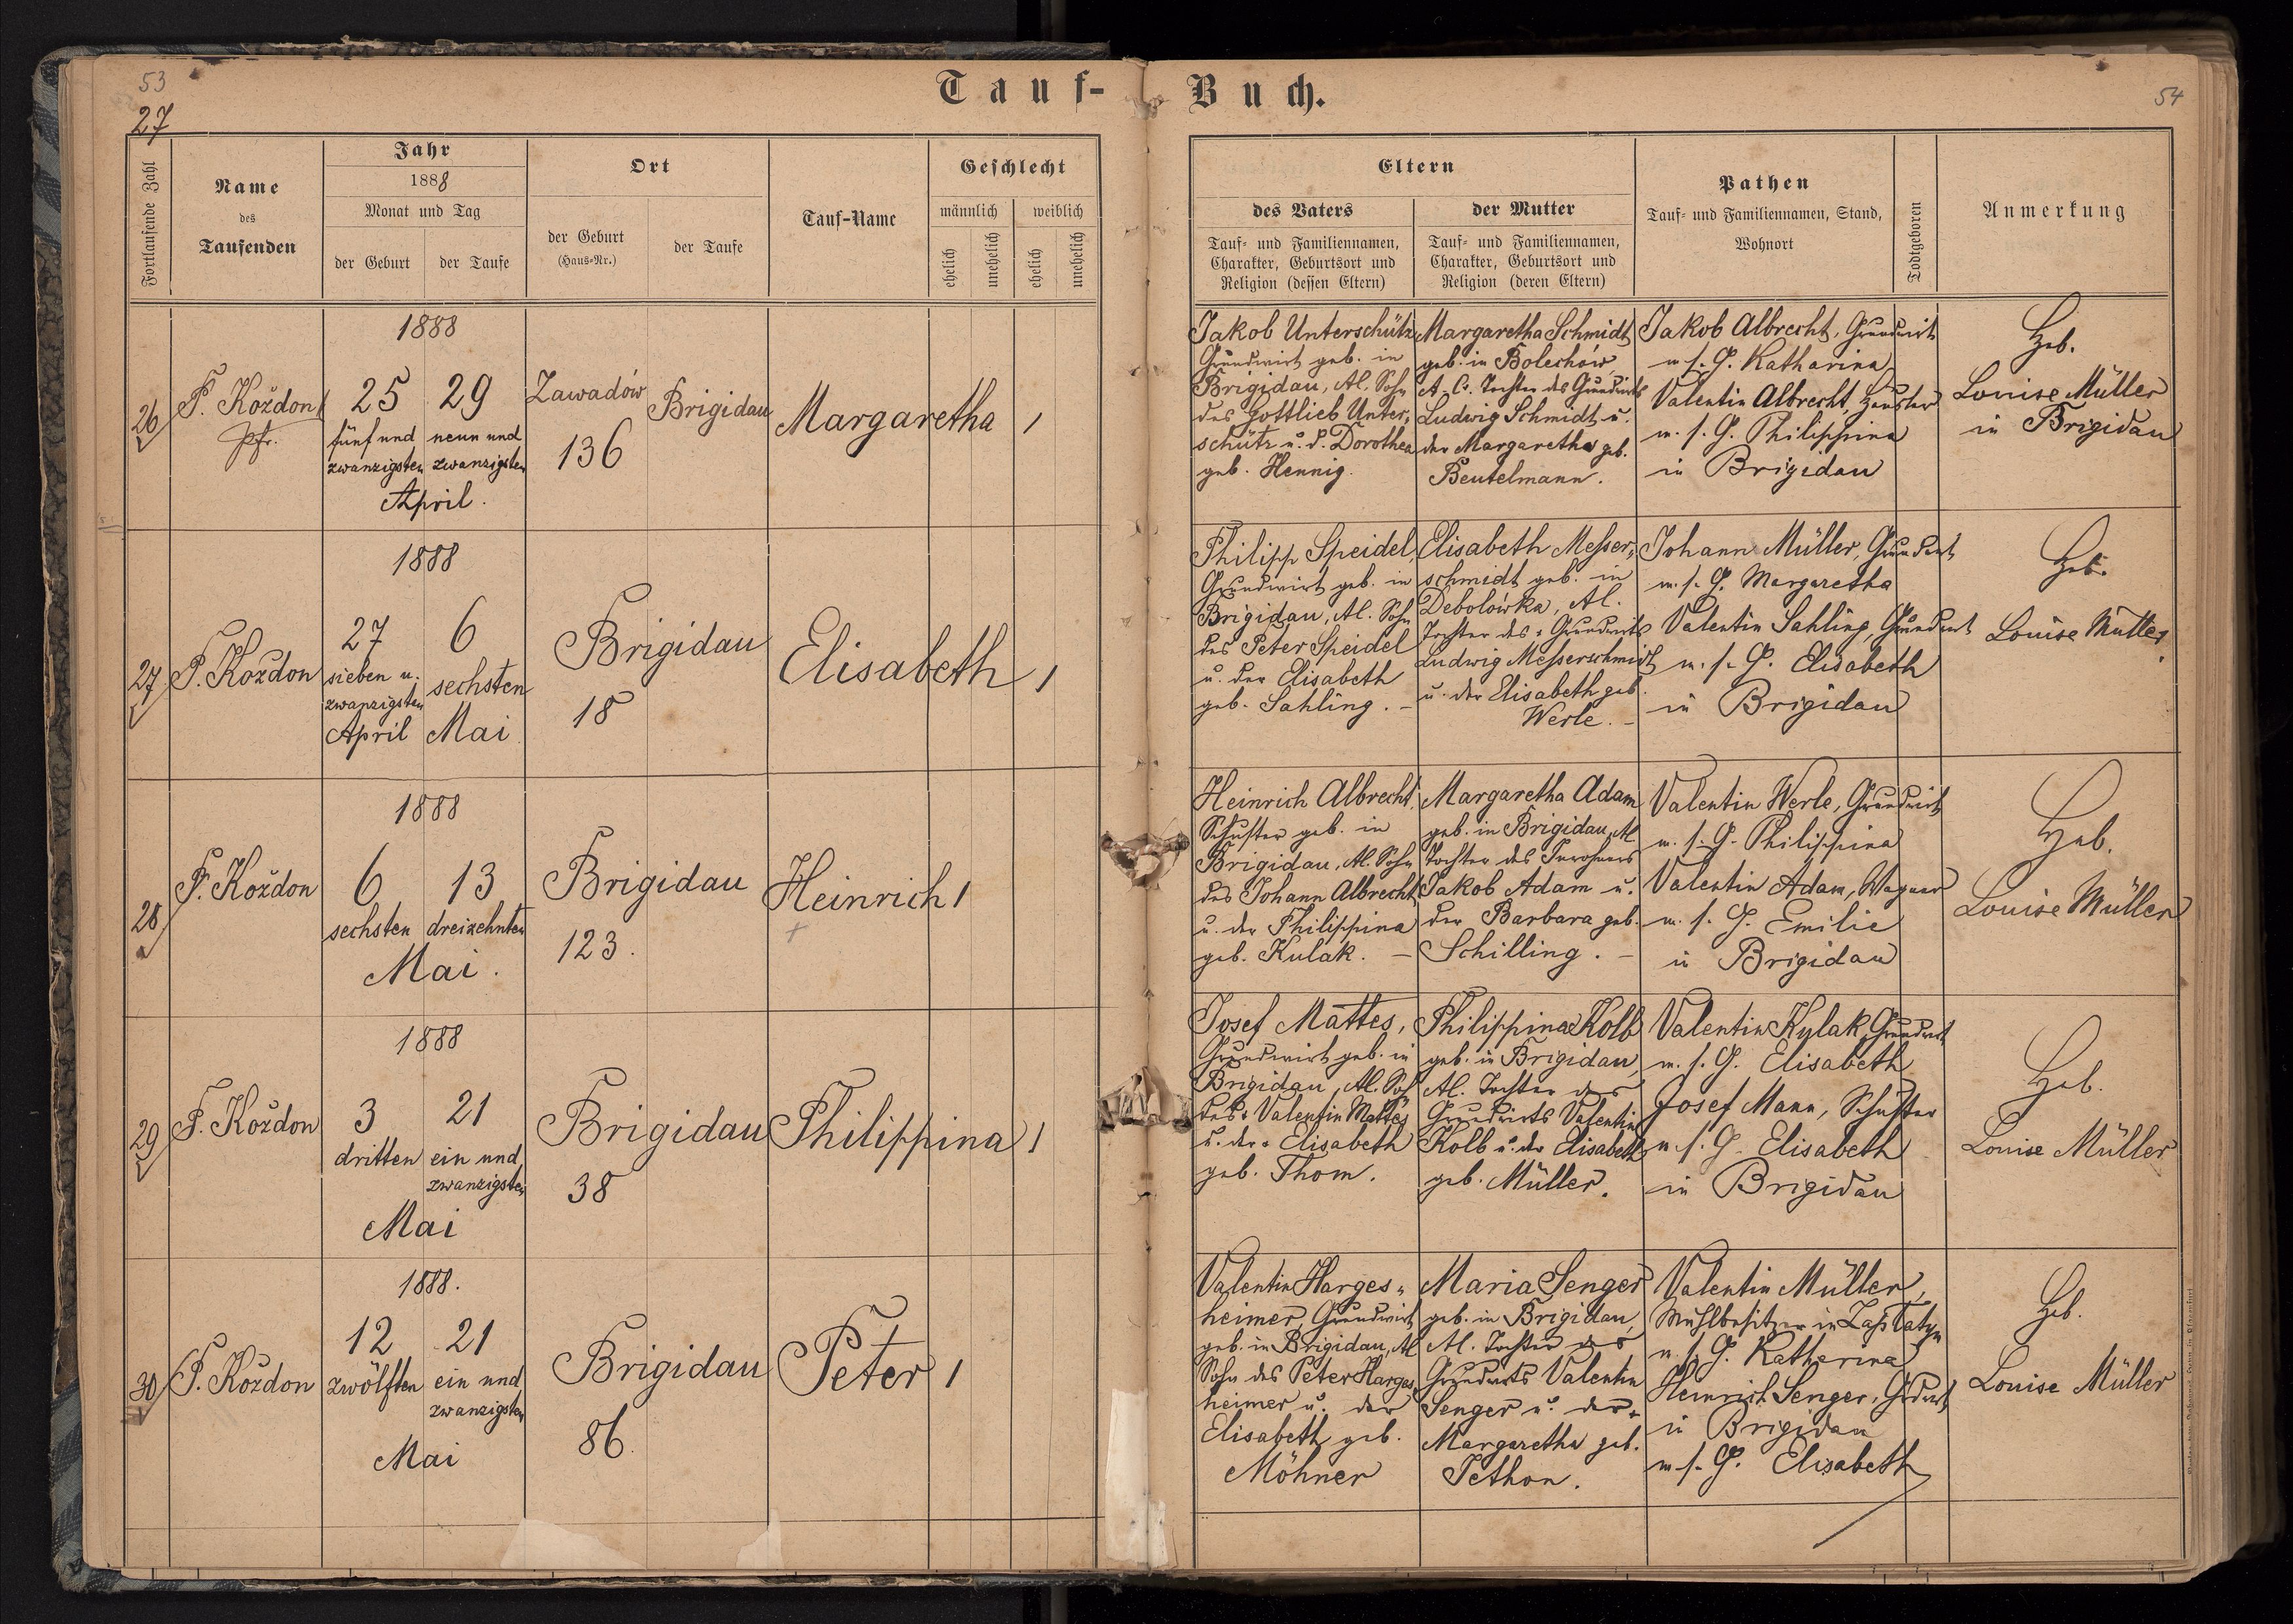 53
54
27
Tauf-Buch.
Fortlaufende Zahl
Name
des
Taufenden
Jahr
1888
Monat und Tag
der Geburt
der Taufe
Ort
der Geburt
(Haus-Nr.)
der Taufe
Tauf-Name
Geschlecht
männlich
weiblich
ehelich
unehelich
ehelich
unehelich
Eltern
des Vaters
Tauf- und Familiennamen,
Charakter, Geburtsort und
Religion (dessen Eltern)
der Mutter
Tauf- und Familiennamen,
Charakter, Geburtsort und
Religion (deren Eltern)
Pathen
Tauf- und Familiennamen, Stand,
Wohnort
Todtgeboren
Anmerkung
26
F. Koždon
Pfr.
1888
25
fünf und
zwanzigsten
29
neun und
zwanzigsten
April.
Zawadów
136
Brigidau
Margaretha
1
Jakob Unterschütz
Grundwirt geb. in
Brigidau, Al. Sohn
des Gottlieb Unter-
schütz u. d. Dorothea
geb. Hennig.
Margaretha Schmidt
geb. in Bolechów
A. C. Tochter des Grundwirts
Ludwig Schmidt u.
der Margaretha geb.
Beutelmann.
Jakob Albrecht, Grundwirt
m. s. G. Katharina,
Valentin Albrecht, Häusler
m. s. G. Philippina
in Brigidau
Heb.
Louise Müller
in Brigidau
27
F. Koždon
1888
27
sieben u.
zwanzigsten
April
6
sechsten
Mai
Brigidau
18
Elisabeth
1
Philipp Speidel,
Grundwirt geb. in
Brigidau, Al. Sohn
des Peter Speidel
u. der Elisabeth
geb. Sahling. –
Elisabeth Messer-
schmidt geb. in
Debolówka, Al.
Tochter des Grundwirts
Ludwig Messerschmidt
u. der Elisabeth geb.
Werle. –
Johann Müller, Grundwirt
m. s. G. Margaretha
Valentin Sahling, Grundwirt
m. s. G. Elisabeth
in Brigidau
Heb.
Louise Müller.
28
F. Koždon
1888
6
sechsten
13
dreizehnten
Mai.
Brigidau
123.
Heinrich
+
1
Heinrich Albrecht,
Schuster geb. in
Brigidau, Al. Sohn
des Johann Albrecht
u. der Philippina
geb. Kulak. –
Margaretha Adam
geb. in Brigidau, Al.
Tochter des Inwohners
Jakob Adam u.
der Barbara geb.
Schilling. –
Valentin Werle, Grundwirt
m. s. G. Philippina
Valentin Adam, Wagner
m. s. G. Emilie
in Brigidau
Heb.
Louise Müller
29
F. Koždon
1888
3
dritten
21
ein und
zwanzigsten
Mai
Brigidau
38
Philippina
1
Josef Mattes,
Grundwirt geb. in
Brigidau, Al. Sohn
des Valentin Mattes
u. der Elisabeth
geb. Thom.
Philippina Kolb
geb. in Brigidau,
Al. Tochter des
Grundwirts Valentin
Kolb u. der Elisabeth
geb. Müller.
Valentin Kulak, Grundwirt
m. s. G. Elisabeth
Josef Mann, Schuster
m. s. G. Elisabeth
in Brigidau
Heb.
Louise Müller
30
F. Koždon
1888.
12
zwölften
21
ein und
zwanzigsten
Mai
Brigidau
86.
Peter
1
Valentin Harges-
heimer, Grundwirt
geb. in Brigidau, Al.
Sohn des Peter Harges-
heimer u. der
Elisabeth geb.
Möhner
Maria Senger
geb. in Brigidau,
Al. Tochter des
Grundwirts Valentin
Senger u. der
Margaretha geb.
Pethon.
Valentin Müller,
Mühlbesitzer in
m. s. G. Katharina
Heinrich Senger,
in Brigidau
m. s. G. Elisabeth
Heb.
Louise Müller